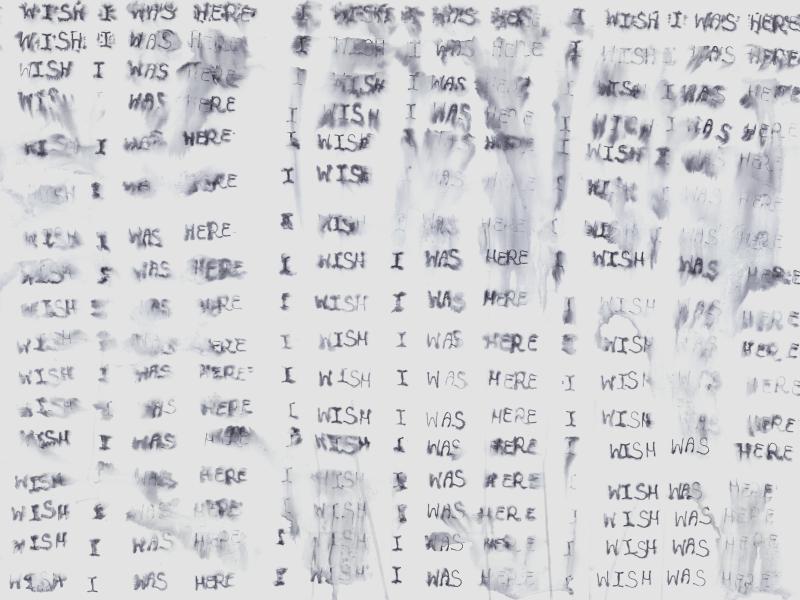 WISH I WAS HERE I WISH I WAS HERE I WISH I WAS HERE
WISH I WAS HERE I WISH I WAS HERE I WISH I WAS HERE
WISH I WAS HERE I WISH I WAS HERE WISH I WAS HERE
WAS HERE I WISH I WAS HERE I WISH I WAS HERE
WISH I WAS HERE I WISH HERE I WISH I WAS HERE
I WAS HERE I WISH WAS WAS HERE
WISH I WAS HERE WISH WAS HERE WAS HERE
WISH I WAS HERE I WISH I WAS HERE I WISH WAS HERE
WISH I WAS HERE I WISH I WAS HERE I WISH WAS HERE
HERE I WISH I WAS HERE I WISH HERE
WISH I WAS HERE I WISH I WAS HERE I WISH HERE
WISH WAS HERE I WISH I WAS HERE I WISH HERE
WISH I WAS WISH I WAS HERE I WISH WAS HERE
WISH I WAS HERE I WISH I WAS HERE WISH WAS HERE
WISH I WAS HERE WISH I WAS HERE WISH WAS HERE
WISH I WAS HERE I I WAS I WISH WAS HERE
WISH I WAS HERE I I WAS HERE WISH WAS HERE